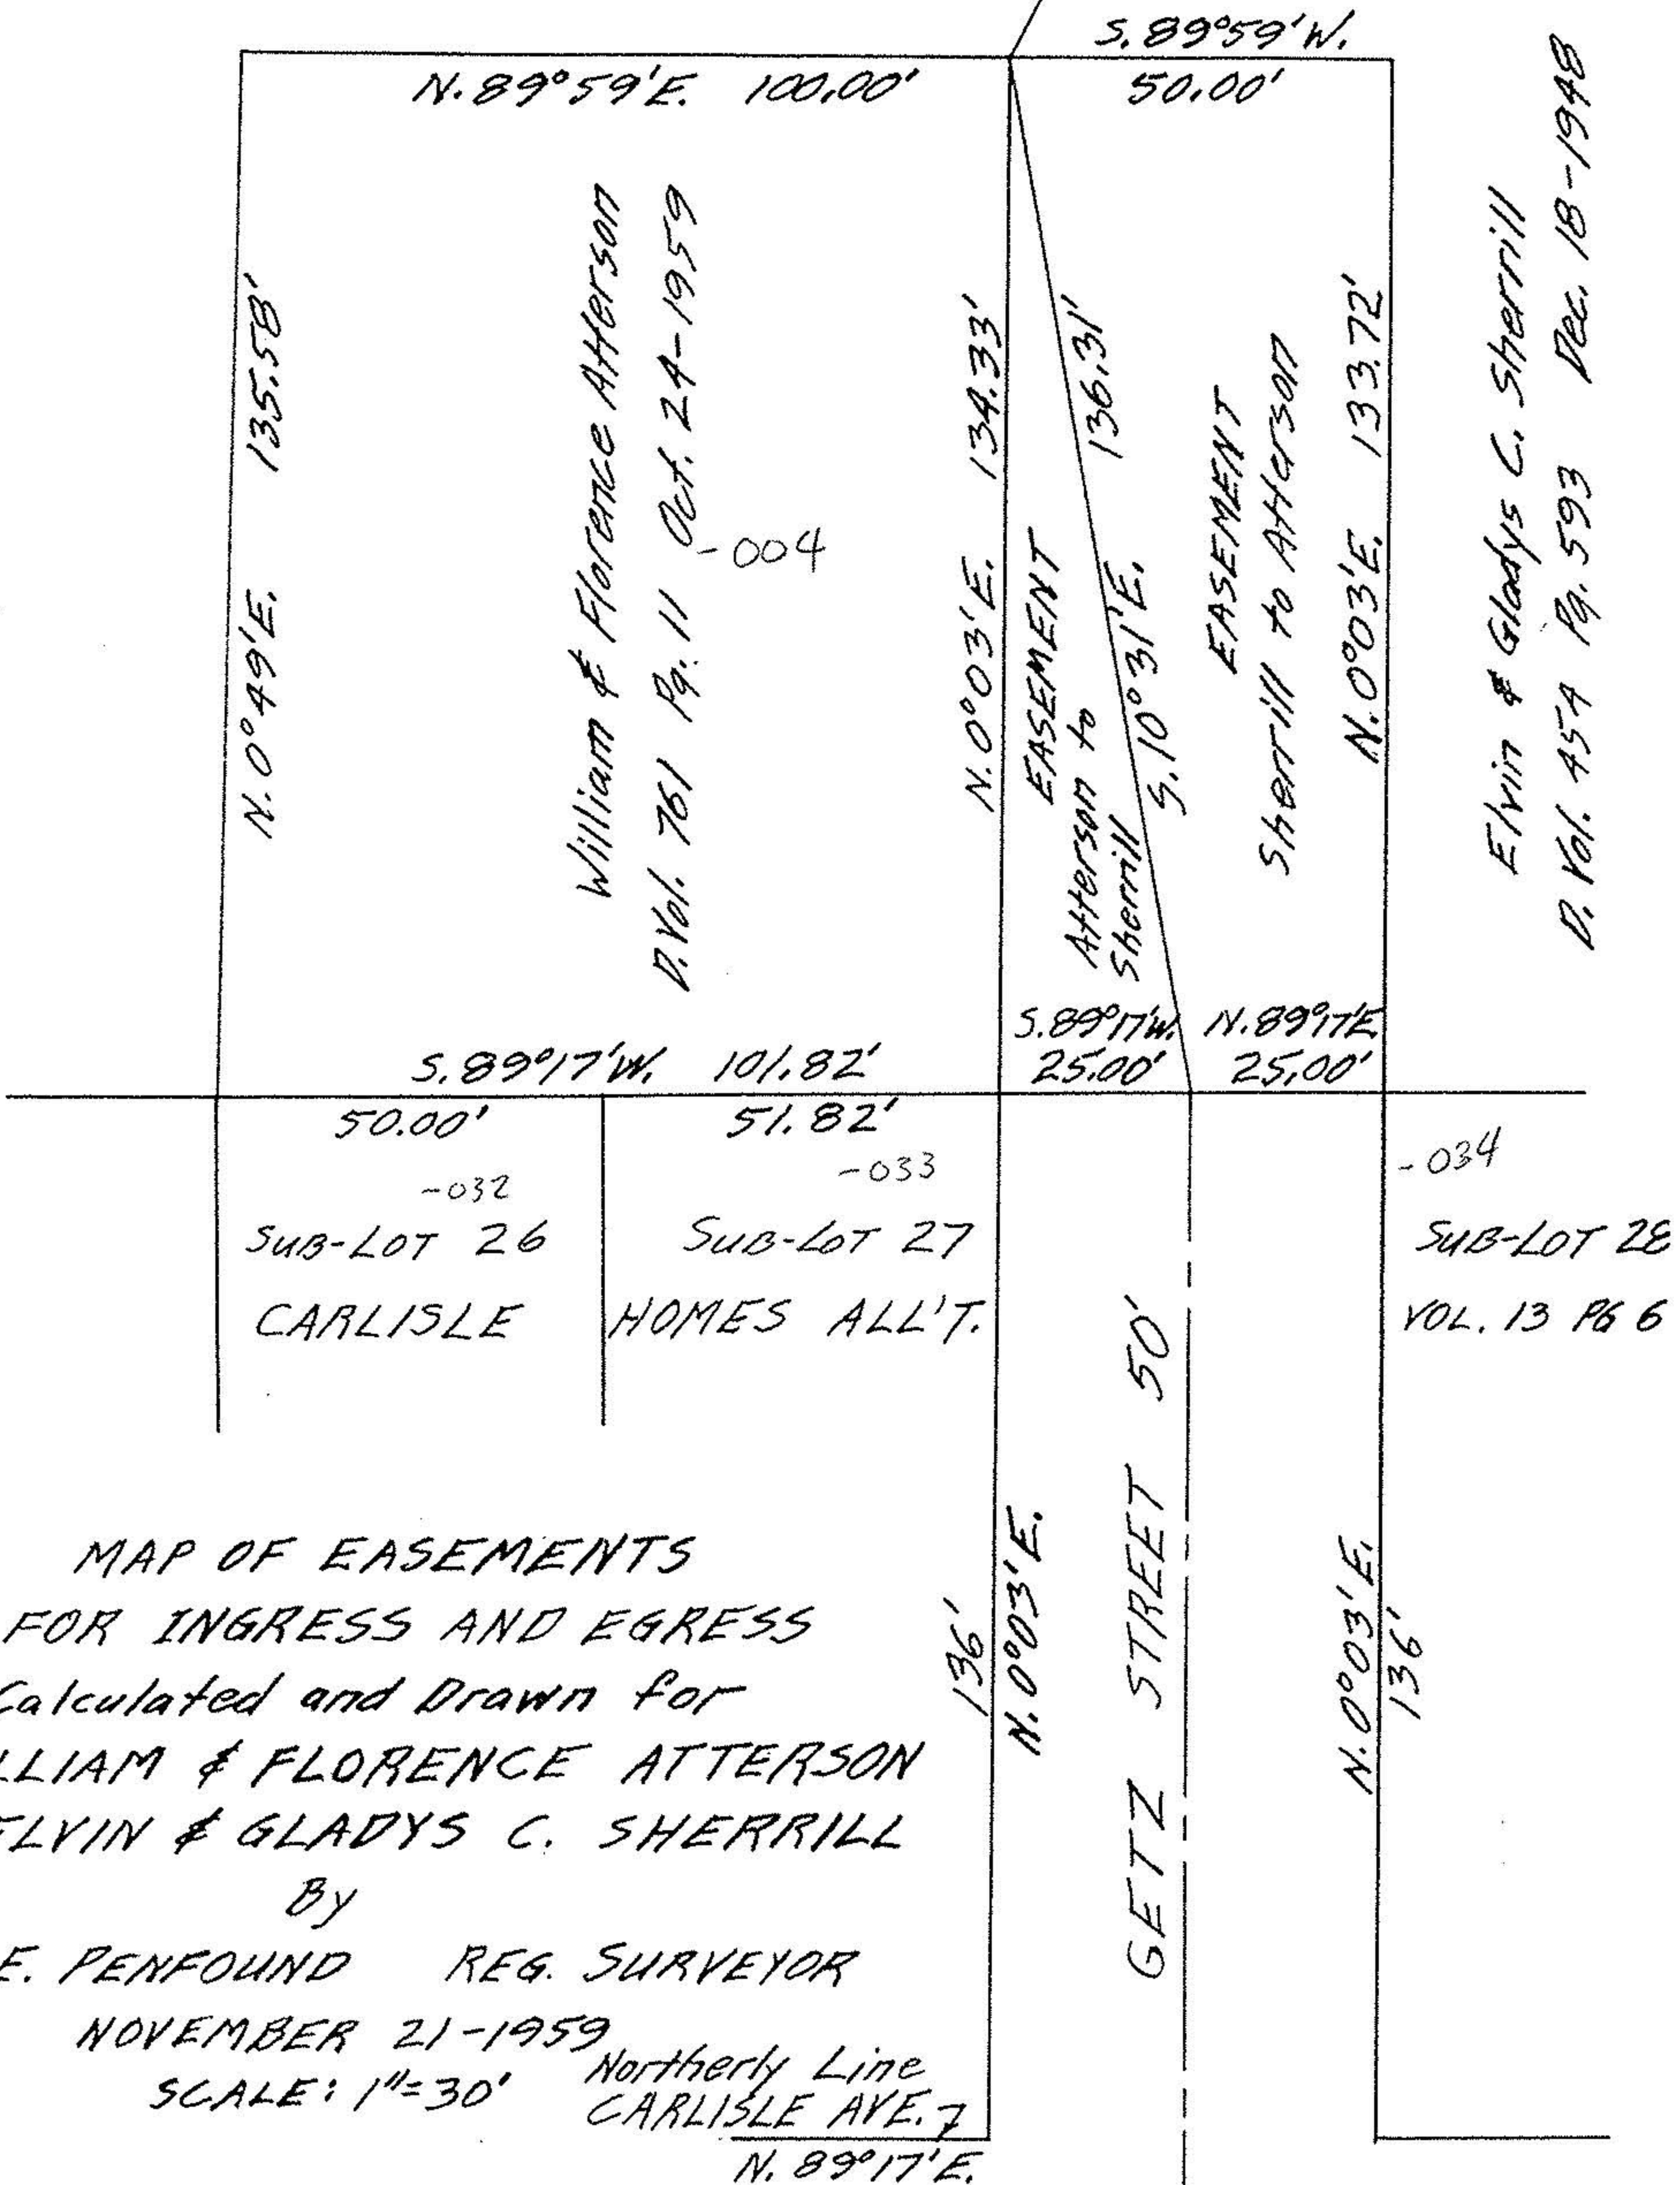 S. 89°59' W.
N. 89°59' E. 100.00'
50.00'
N. 0°49' E. 135.58'
William & Florence Atterson
D. Vol. 761 Pg. 11 Oct. 24-1959
-004
N. 0°03' E. 134.33'
EASEMENT
Atterson to
Sherrill
S. 10°31' E. 136.31'
EASEMENT
Sherrill to Atterson
N. 0°03' E. 133.72'
Elvin & Gladys C. Sherrill
D. Vol. 454 Pg. 593 Dec. 18-1948
S. 89°17' W. 101.82'
S. 89°17' W.
25.00'
N. 89°17' E
25.00'
50.00'
51.82'
-032
-033
-034
SUB-LOT 26
SUB-LOT 27
SUB-LOT 28
CARLISLE HOMES ALL'T.
VOL. 13 PG 6
136'
N. 0°03' E.
GETZ STREET 50'
N. 0°03' E.
136'
MAP OF EASEMENTS
FOR INGRESS AND EGRESS
Calculated and Drawn for
LLIAM & FLORENCE ATTERSON
ELVIN & GLADYS C. SHERRILL
By
E. PENFOUND REG. SURVEYOR
NOVEMBER 21-1959
SCALE: 1"=30'
Northerly Line
CARLISLE AVE.
N. 89°17' E.